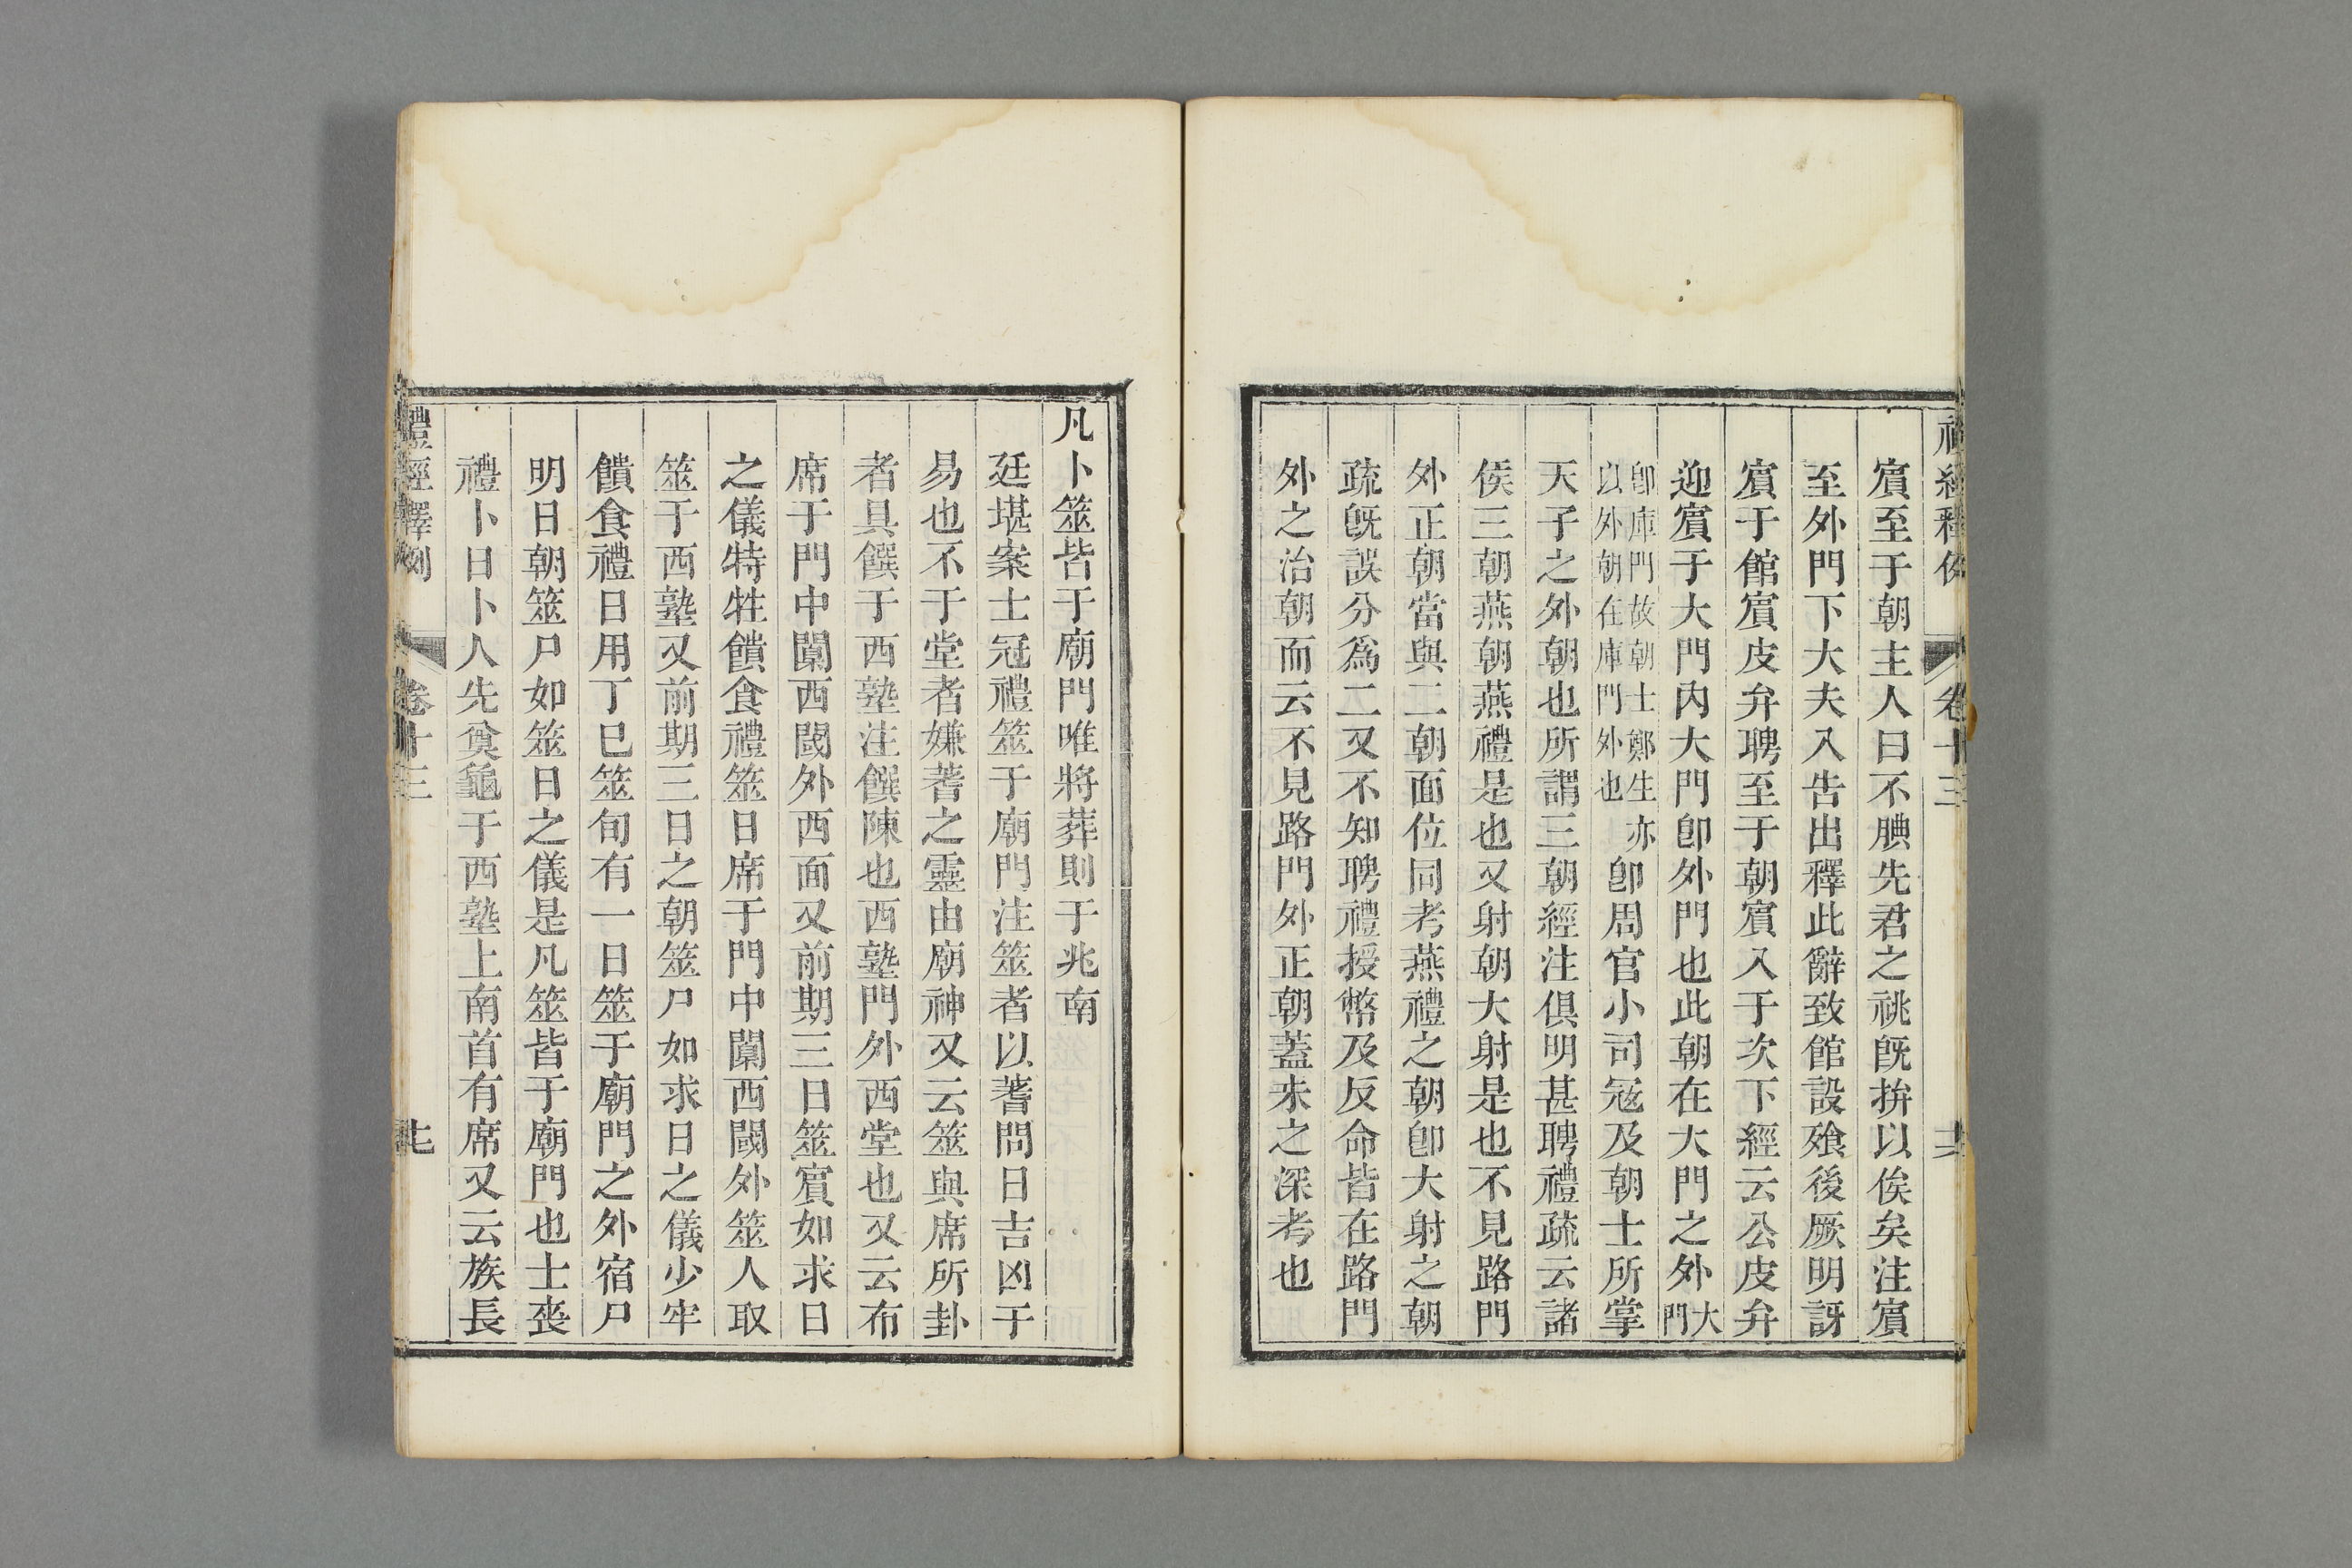 賔至于朝主人曰不腆先君之祧旣拚以俟矣注賔
至外門下大夫入告出釋此辭致館設飱後厥明訝
賔于館賔皮弁聘至于朝賔入于次下經云公皮弁
迎賔于大門內大門卽外門也此朝在大門之外大門
卽庫門故朝士鄭生亦
以外朝在庫門外也
卽周官小司冦及朝士所掌
天子之外朝也所謂三朝經注俱明甚聘禮疏云諸
侯三朝燕朝燕禮是也又射朝大射是也不見路門
外正朝當與二朝面位同考燕禮之朝卽大射之朝
疏旣誤分爲二又不知聘禮授幣及反命皆在路門
外之治朝而云不見路門外正朝蓋未之深考也
凡卜筮皆于廟門唯將葬則于兆南
廷堪案士冠禮筮于廟門注筮者以蓍問日吉凶于
易也不于堂者嫌蓍之靈由廟神又云筮與席所卦
者具饌于西塾注饌陳也西塾門外西堂也又云布
席于門中闑西閾外西面又前期三日筮賔如求日
之儀特牲饋食禮筮日席于門中闑西閾外筮人取
筮于西塾又前期三日之朝筮尸如求日之儀少牢
饋食禮日用丁巳筮旬有一日筮于廟門之外宿尸
明日朝筮尸如筮日之儀是凡筮皆于廟門也士喪
禮卜日卜人先奠龜于西塾上南首有席又云族長
禮經釋例
卷十三
七